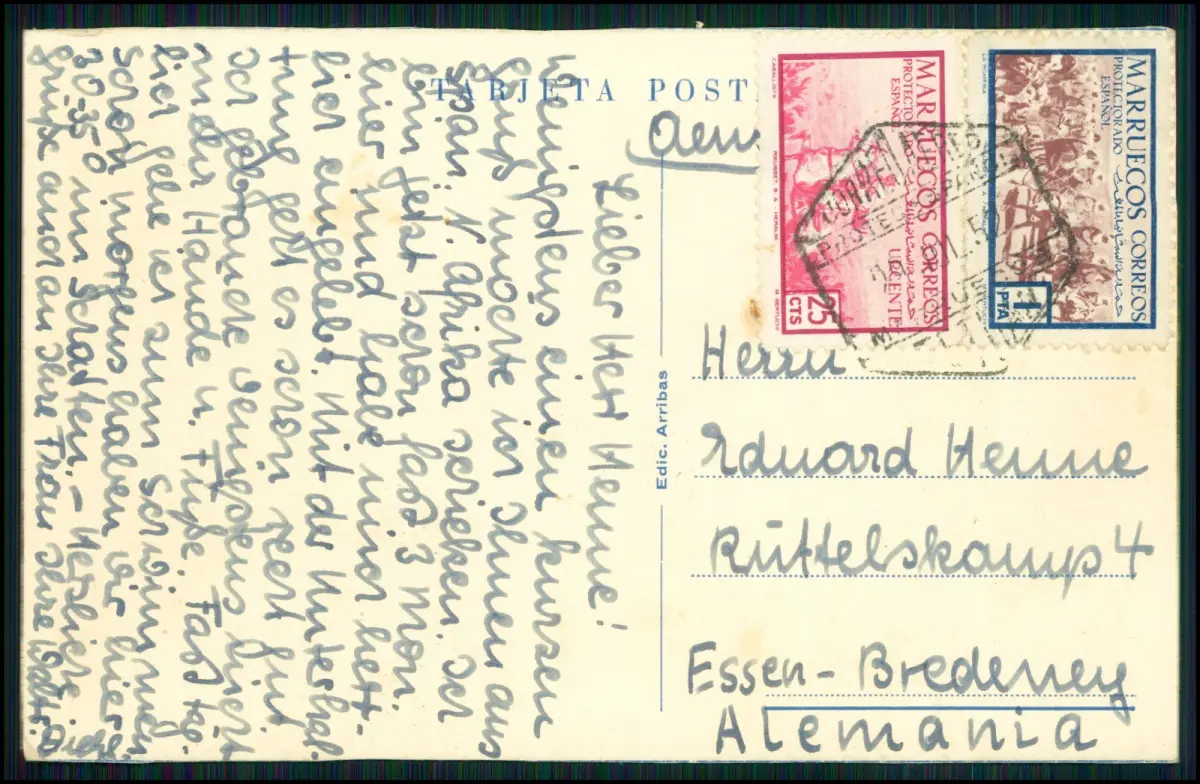 TARJETA POST
Lieber Herr Henne!
Wenigstens einen kurzen
Gruß möchte ich Ihnen aus
Span. N. Afrika schicken. Ich
bin jetzt schon fast 3 Mon.
hier und habe mich herr-
lich eingelebt. Mit der Unterhal-
tung geht es schon recht gut
Ich gebrauche wenigstens nicht
mehr Hände u. Füße. Fast täg-
lich gehe ich zum Schwimmen
Schon morgens haben wir hier
30-35° im Schatten.- Herzliche
Grüße auch an Ihre Frau Ihre
Edic. Arribas
MARRUECOS CORREOS
PROTECTORADO
ESPAÑOL
URGENTE
25
CTS
MARRUECOS CORREOS
PROTECTORADO
ESPAÑOL
1
PTA
Herrn
Eduard Henne
Rüttelskamp 4
Essen-Bredeney
Alemania